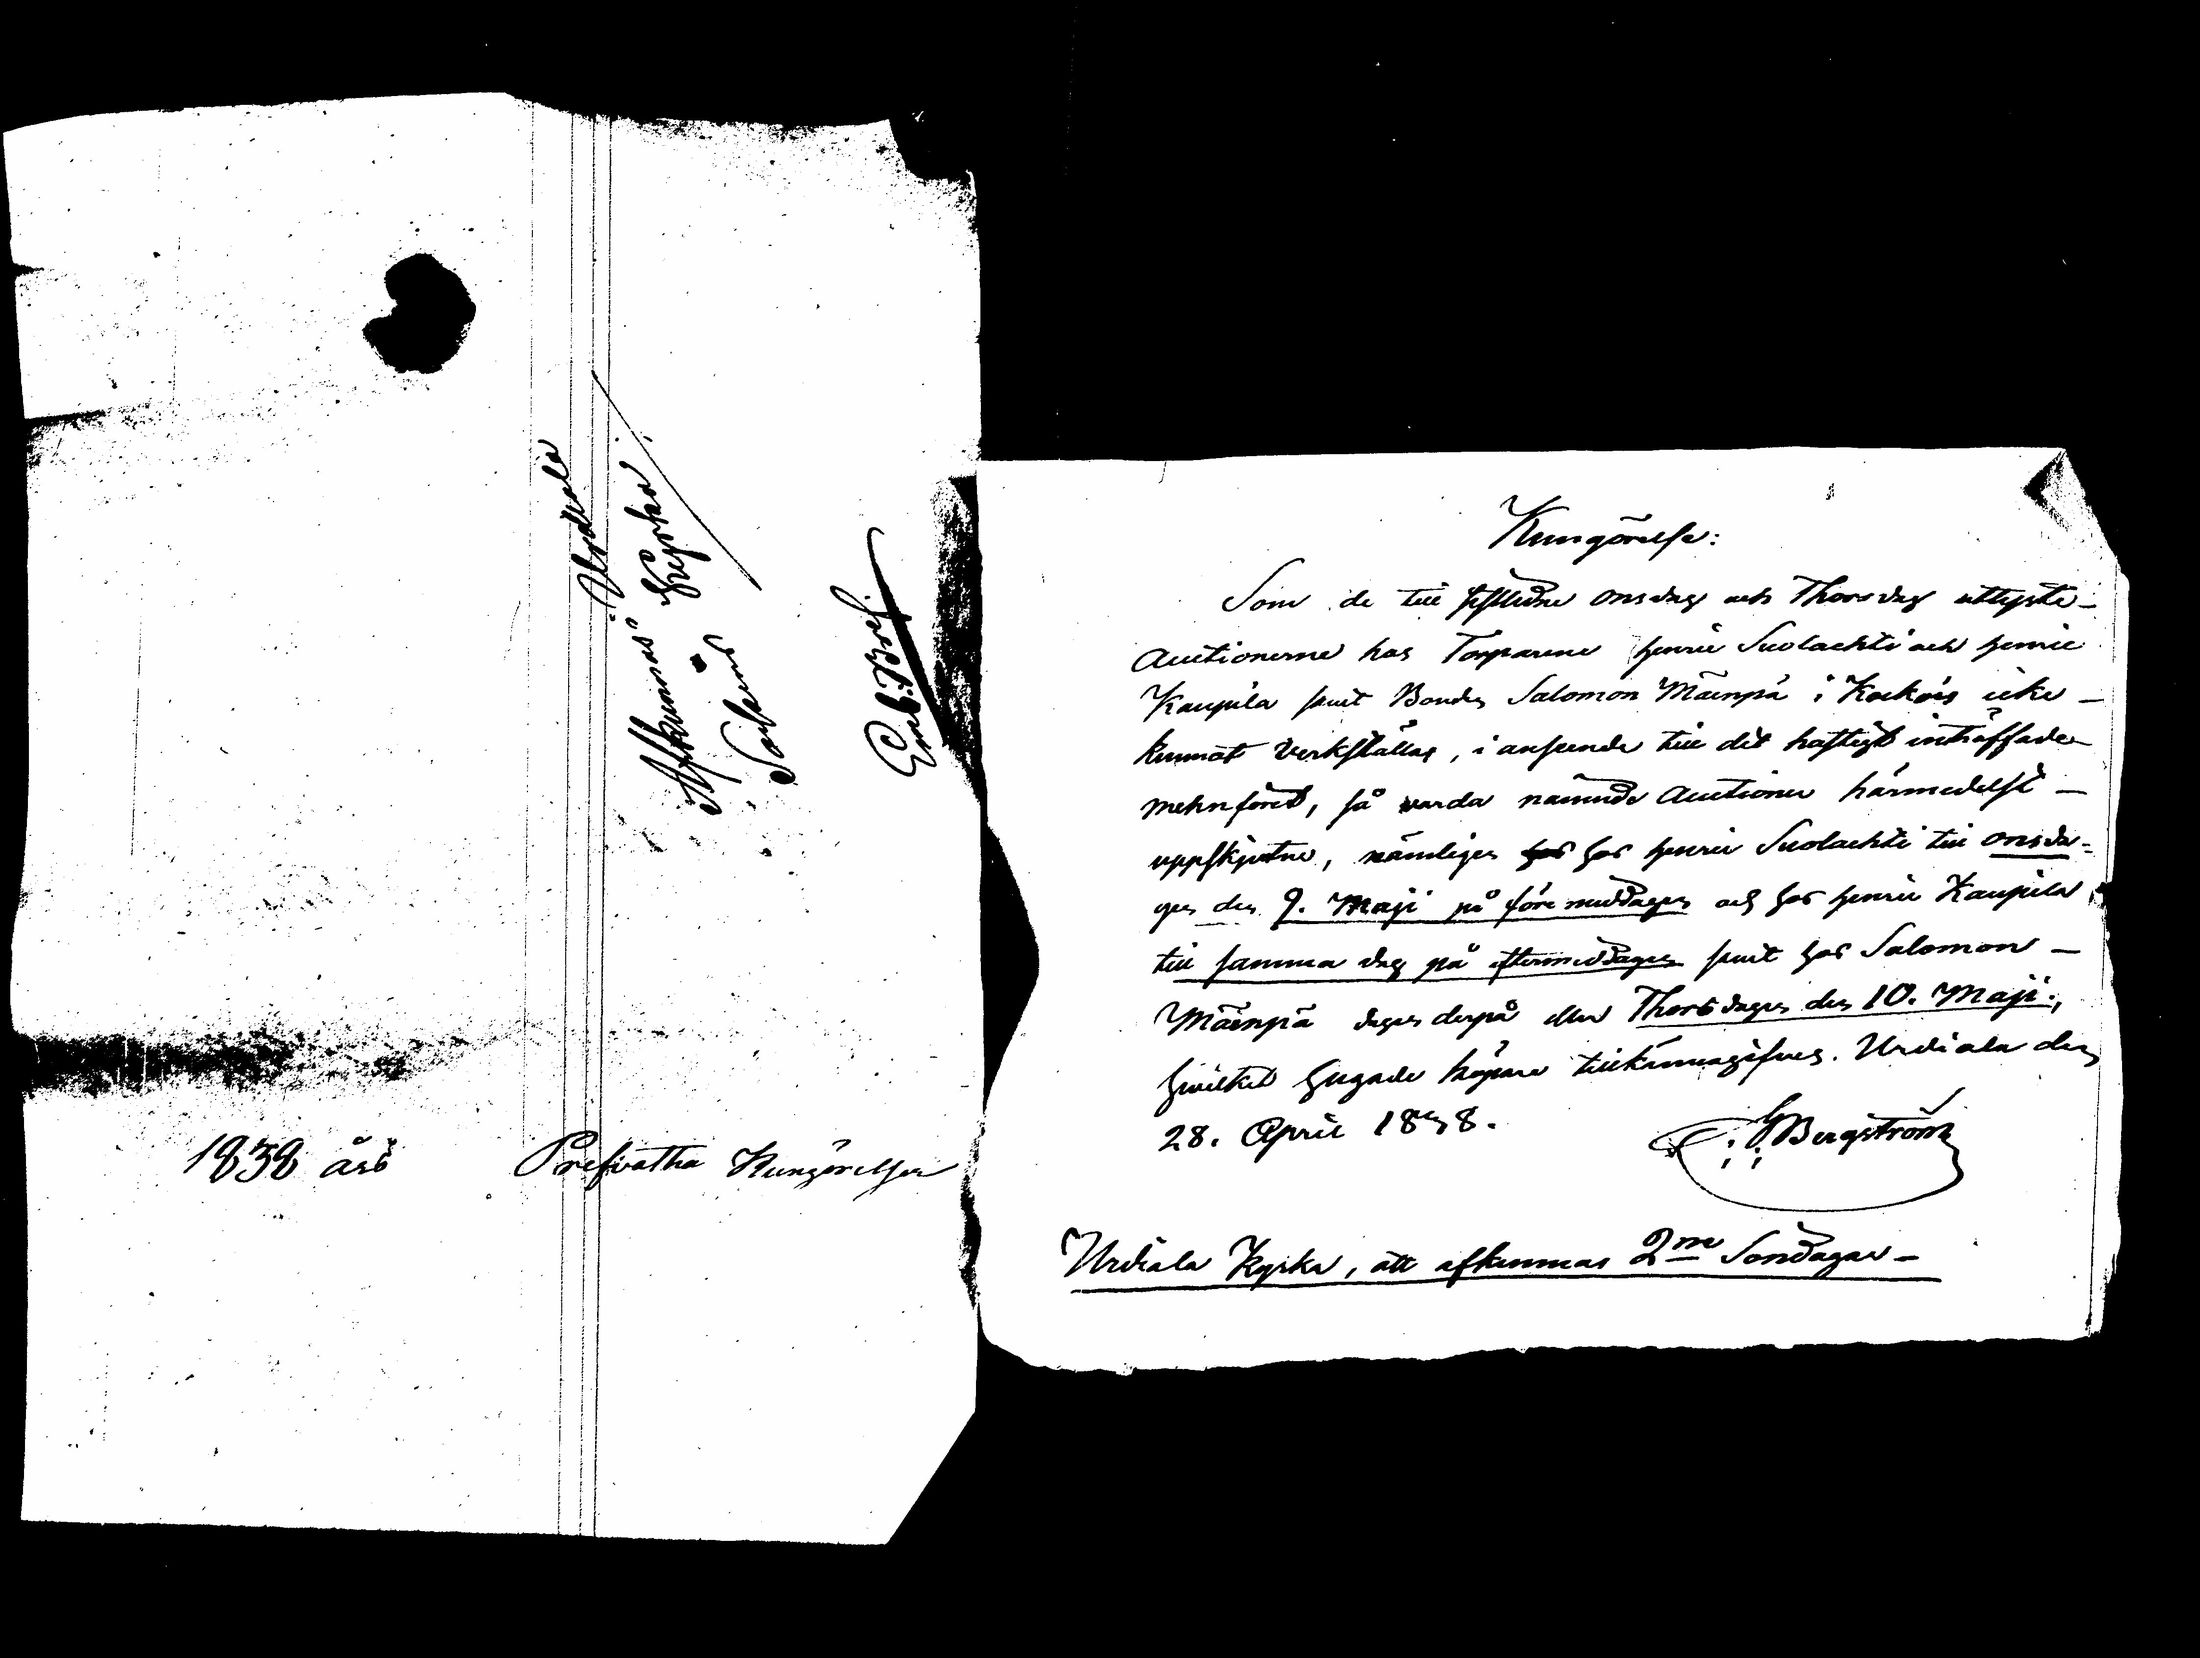 Afkunnas "Urdiala
Kyrka
Sockens
Emb:Bref.
1838 års Prefvatha Kungörelser
Kungörelse:
Som de till sistledne onsdag och Thorsdag utlyste
Auctionerne hos Torparene Henric Suolachti och Henric
Kaupila samt Bonden Salomon Mäenpä i Kockois icke
kunnat verkställas, i anseende till det hastigt inträffade
mehnföret, så warda nämnde Auctioner härmedelst
uppskjutne, nämligen hos Henric Suolachti till onsda-
gen den 9. Maji på föremiddagen och hos Henric Kaupila
till samma dag på eftermiddagen samt hos Salomon
Mäenpä dagen derpå eller Thorsdagen den 10. Maji.,
hvilket hugade köpare tillkännagifves. Urdiala den
28. April 1838.
G Bergström
Urdiala Kyrka, att afkunnas 2ne Söndagar